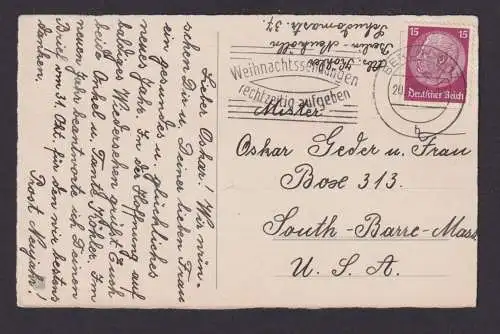 Lieber Oskar! Wir wün-
schen Dir u Deiner lieben Frau
ein gesundes u glückliches
neues Jahr. In der Hoffnung auf
baldiges Wiedersehen grüßt Euch
beide Onkel u. Tante Köhler. Im
neuen Jahr beantworte ich Deinen
Brief vom 31. Okt. für den wir bestens
danken.
Prost Neujahr!
Abs. Köhler
Berlin-Neukölln
Schudomastr. 37.
Weihnachtssendungen
rechtzeitig aufgeben
15 15
Deutsches Reich
20.
b
Mister
Oskar Geder u Frau
Box 313.
South-Barre-Mass
U. S. A.